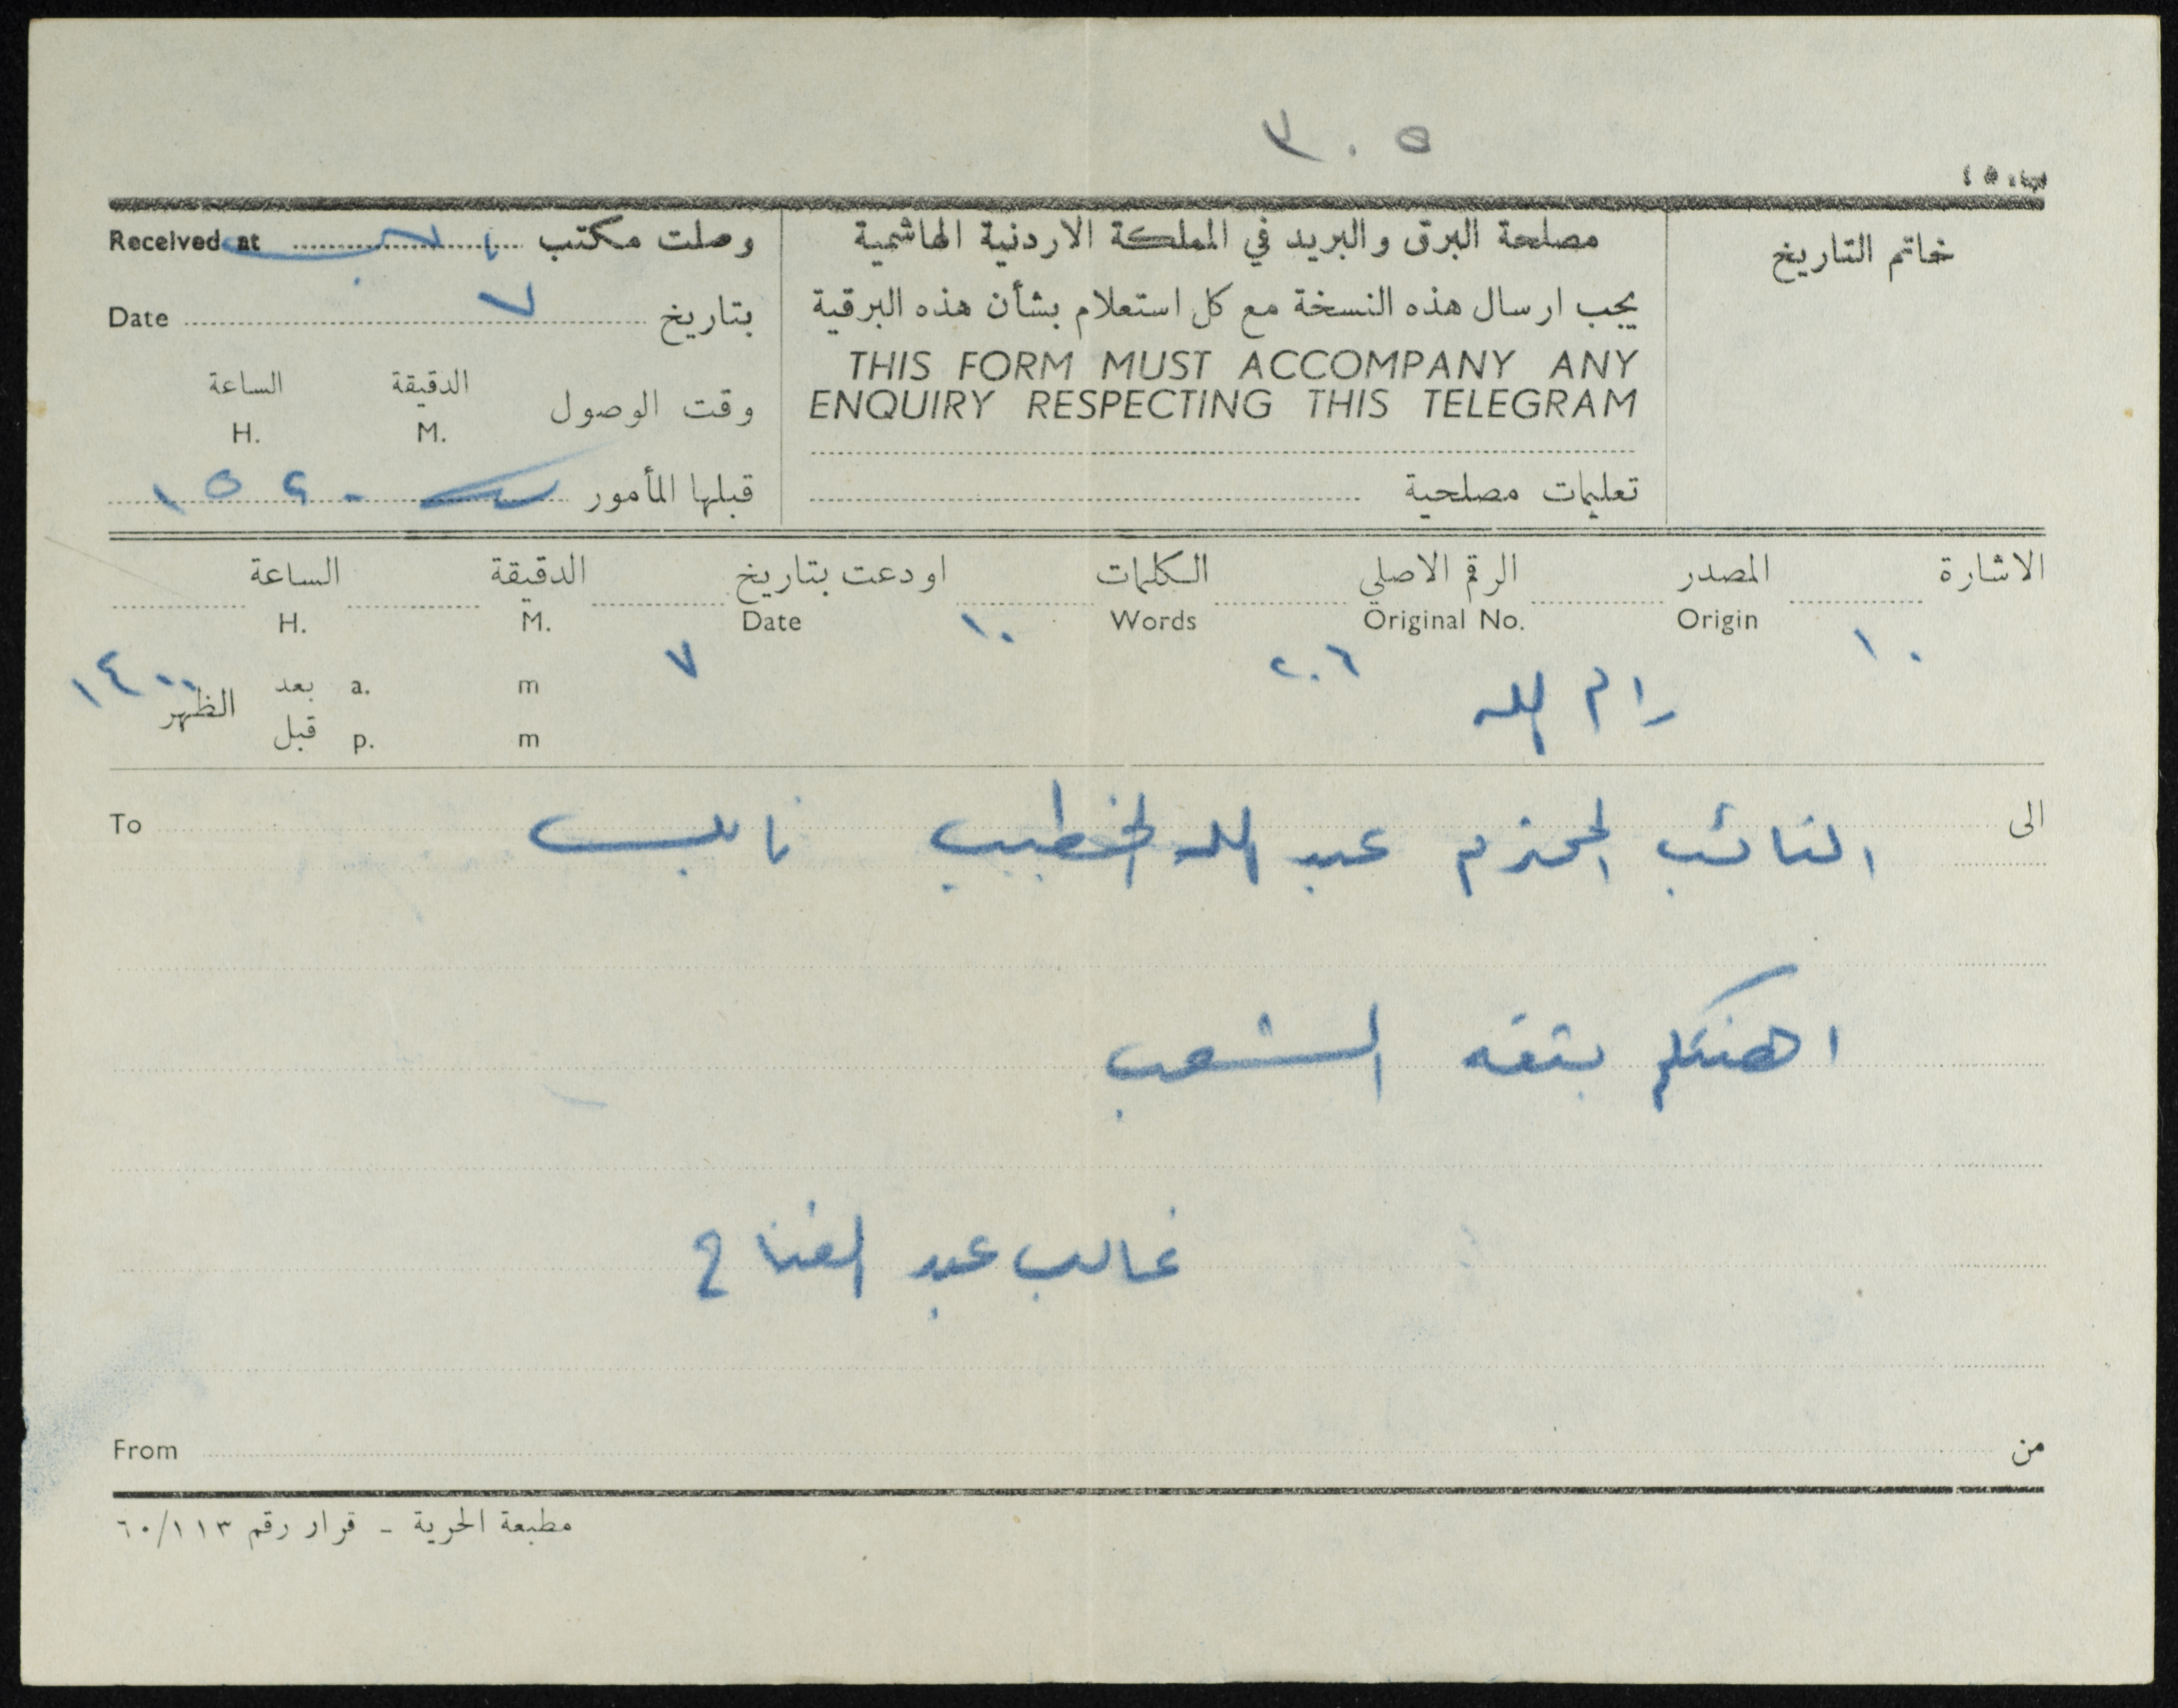 ٣٠٥
خاتم التاريخ
مصلحة البرق والبريد في المملكة الاردنية الهاشمية
يجب ارسال هذه النسخة مع كل استعلام بشأن هذه البرقية
THIS FORM MUST ACCOMPANY ANY
ENQUIRY RESPECTING THIS TELEGRAM
تعليمات مصلحية
وصلت مكتب Received at
بتاريخ ٧ Date
وقت الوصول الدقيقة الساعة
M. H.
قبلها المأمور ١٥٤٠
الاشارة المصدر الرقم الاصلي الكلمات اودعت بتاريخ الدقيقة الساعة
Origin Original No. Words Date M. H.
١٠ رام الله ٢٠٦ ١٠ ٧ ١٤٠٠
m a. بعد الظهر
m p. قبل
الى النائب المحترم عبد الله الخطيب نابلس To
اهنئكم بثقه الشعب
غالب عبد الفتاح
من From
مطبعة الحرية - قرار رقم ٦٠/١١٣